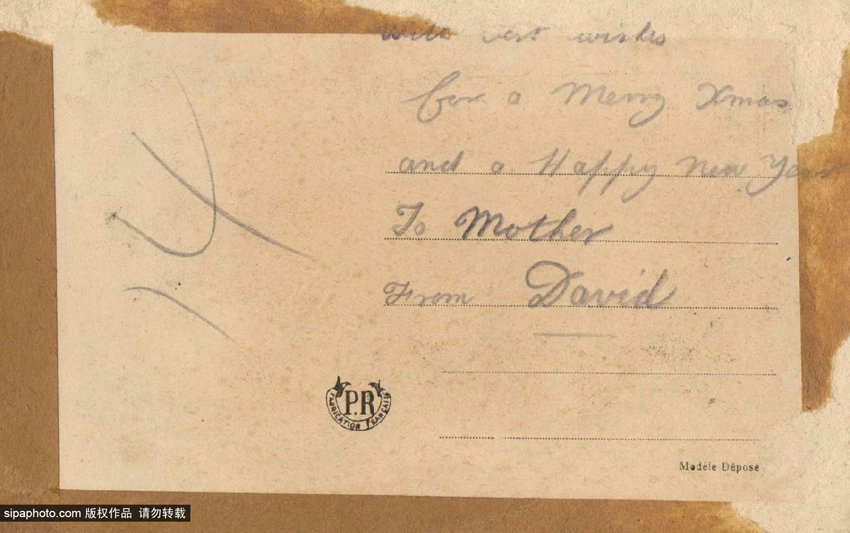 With best wishes
for a Merry Xmas
and a Happy New Year
To Mother
From David
P.R
FABRICATION FRANÇAISE
Modèle Déposé
sipaphoto.com 版权作品 请勿转载